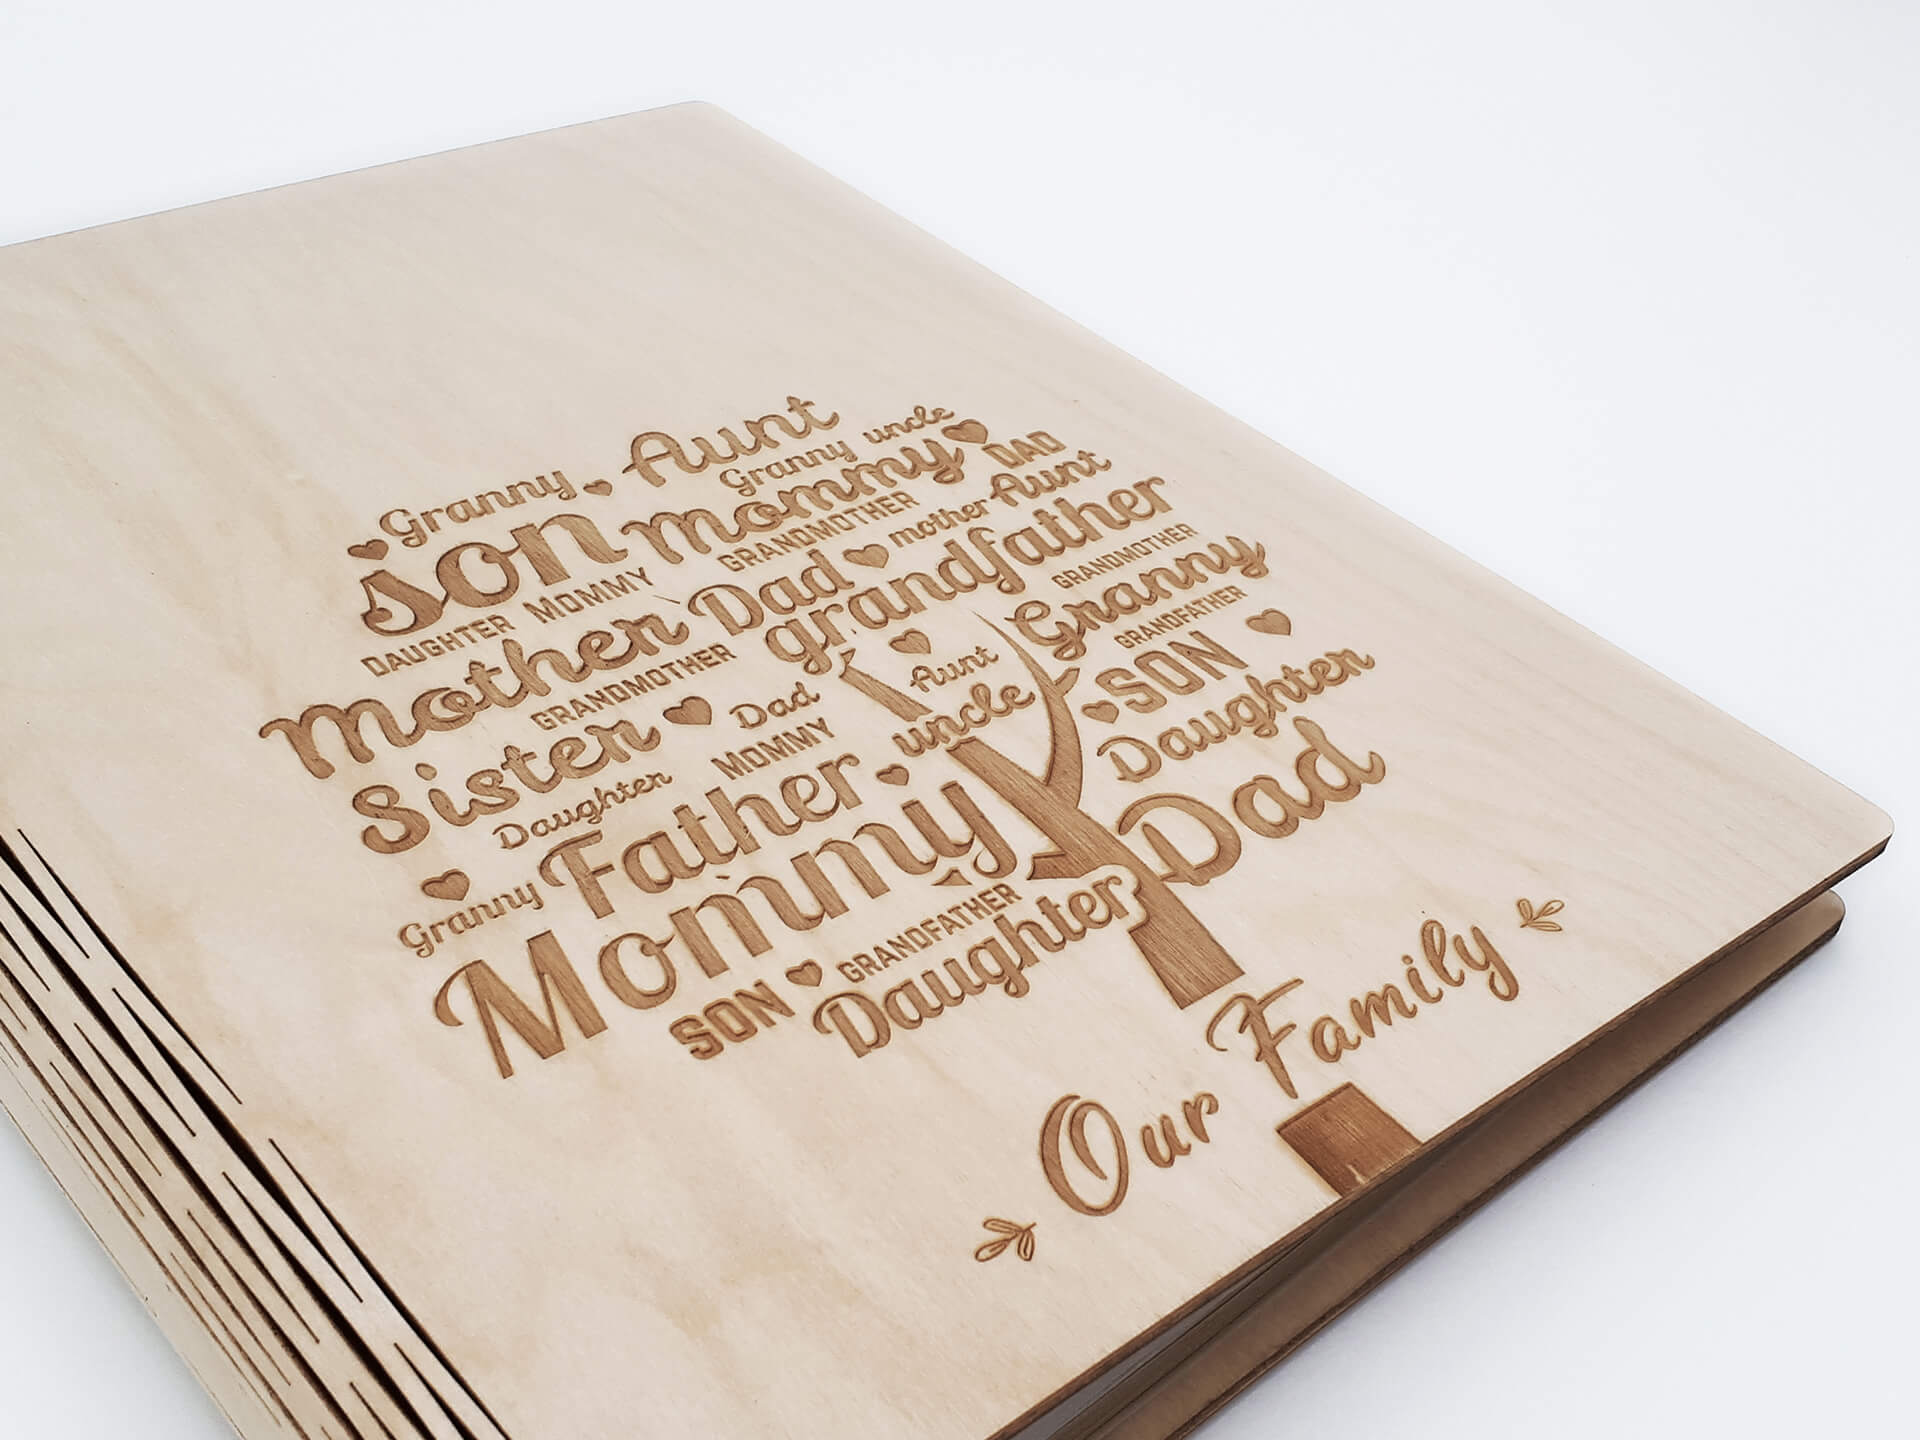 Aunt
Granny
Granny uncle
son mommy DAD
DAUGHTER MOMMY GRANDMOTHER mother Aunt
Mother Dad grandfather
GRANDMOTHER
GRANDMOTHER Granny
Sister Dad Aunt GRANDFATHER
Daughter MOMMY uncle SON
Granny Father Daughter
Mommy Dad
SON GRANDFATHER
Daughter
Our Family